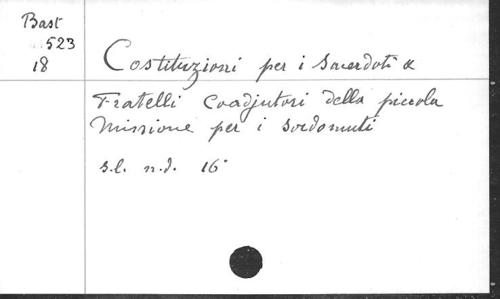 Bast
523
18
Costituzioni per i Sacerdoti &
Fratelli Coadjutori della piccola
Missione per i sordomuti
s.l. n.d. 16°